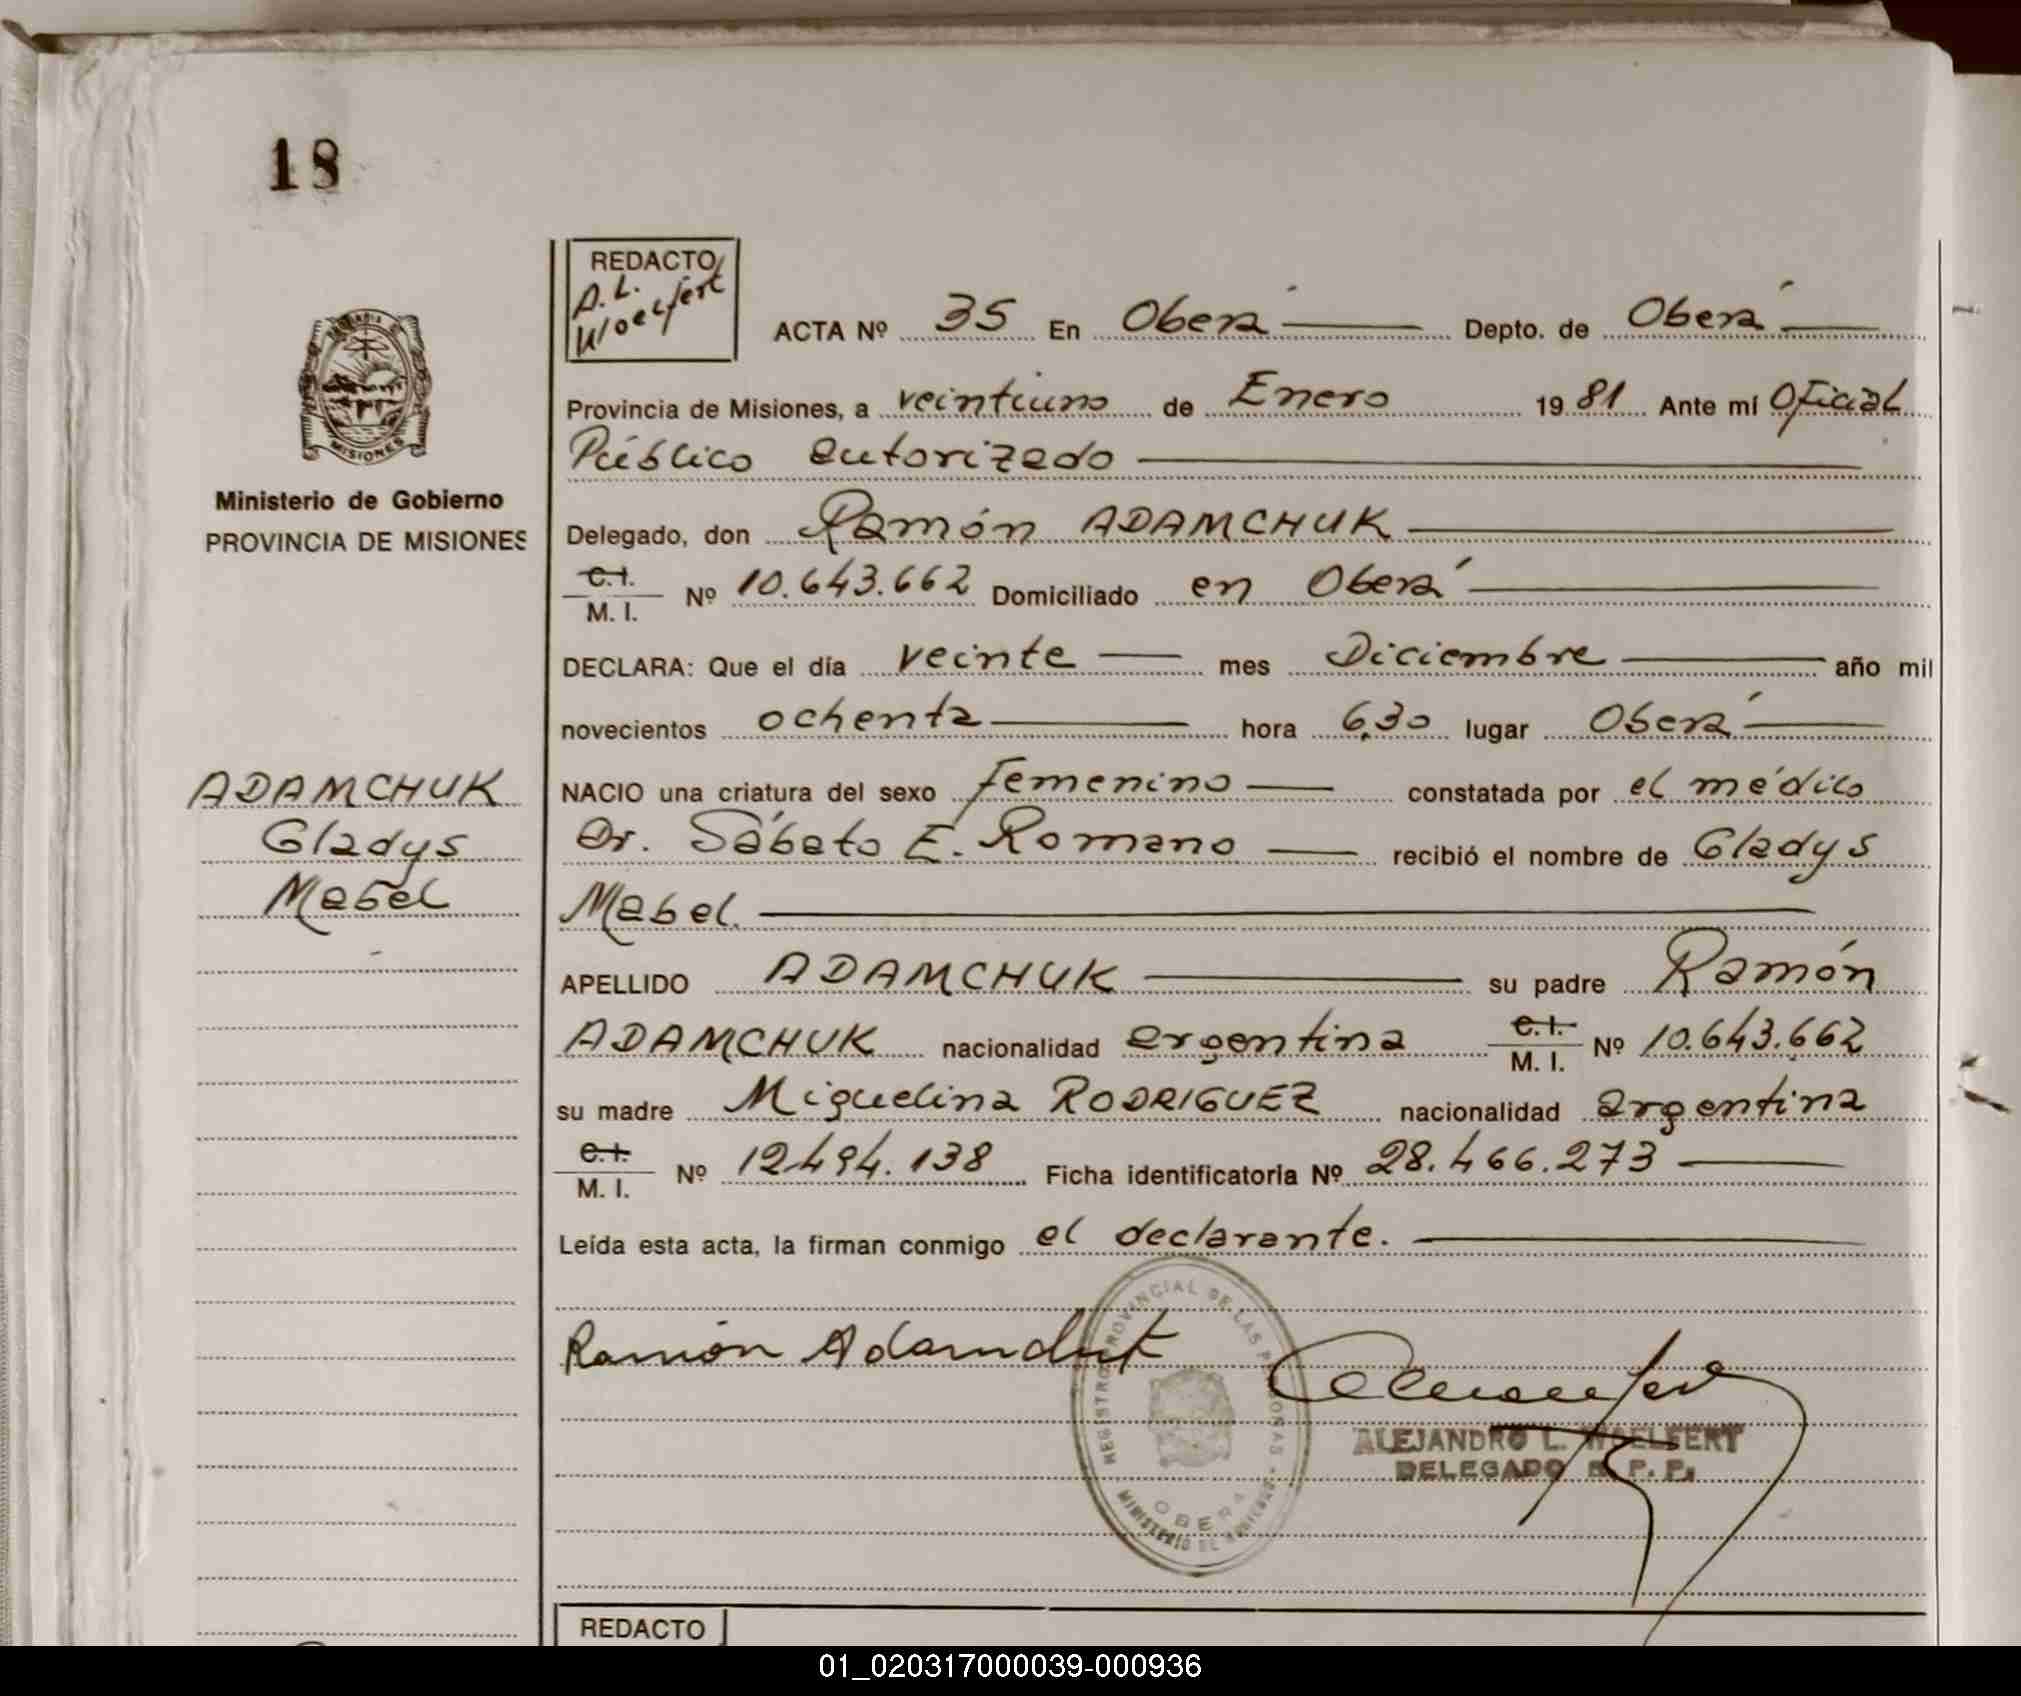 18
REDACTO
A. L.
Woelfert
ACTA Nº 35 En Oberá Depto. de Oberá
Provincia de Misiones, a veintiuno de Enero 1981 Ante mí Oficial
Público autorizado
Ministerio de Gobierno
PROVINCIA DE MISIONES
Delegado, don Ramón ADAMCHUK
C. I.
M. I. Nº 10.643.662 Domiciliado en Oberá
DECLARA: Que el día veinte mes Diciembre año mil
novecientos ochenta hora 6,30 lugar Oberá
ADAMCHUK
Gladys
Mabel
NACIO una criatura del sexo femenino constatada por el médico
Dr. Sábato E. Romano recibió el nombre de Gladys
Mabel.
APELLIDO ADAMCHUK su padre Ramón
ADAMCHUK nacionalidad argentina C. I. M. I. Nº 10.643.662
su madre Miguelina RODRIGUEZ nacionalidad argentina
C. I.
M. I. Nº 12.494.138 Ficha identificatoria Nº 28.466.273
Leída esta acta, la firman conmigo el declarante.
Ramón Adamchuk
REGISTRO PROVINCIAL DE LAS PERSONAS
OBERA
MINISTERIO DE GOBIERNO
ALEJANDRO L. WOELFERT
DELEGADO R. P. P.
REDACTO
01_020317000039-000936